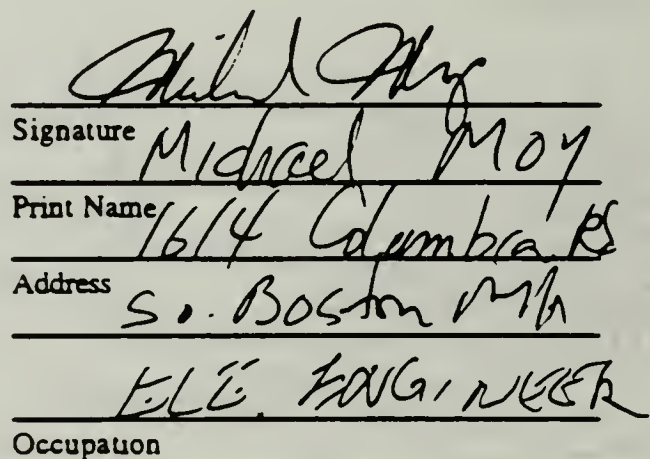 Michael Moy
Signature
Michael Moy
Print Name
1614 Columbia Rd
Address
So. Boston MA
ELE. ENGINEER
Occupation